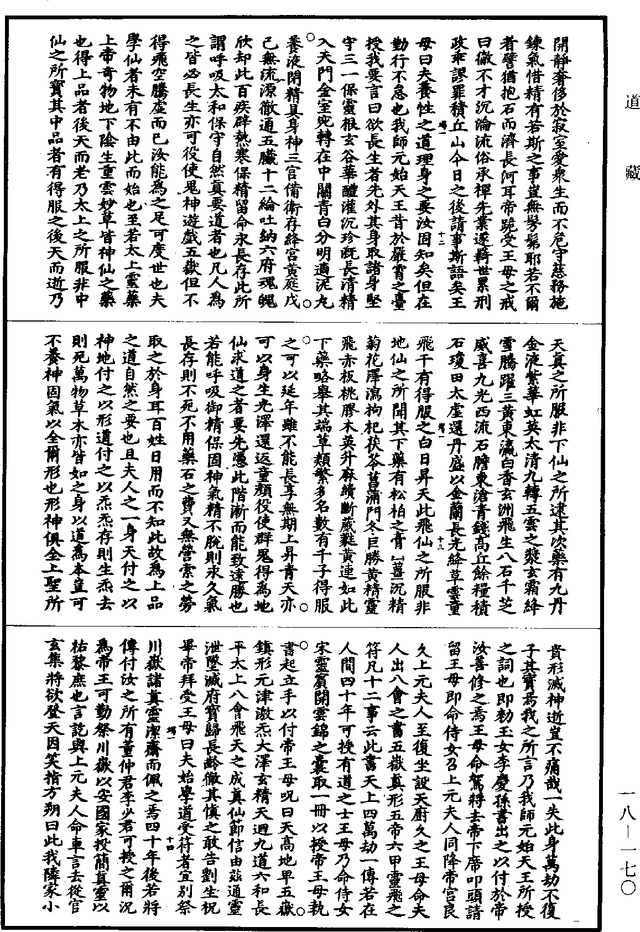 道藏
開靜奢侈於寂室愛衆生而不危守慈務施
鍊氣惜精有若斯之事豈無髣髴耶若不爾
者譬猶抱石而濟長河耳帝跪受王母之戒
曰徹不才沉淪流俗承禪先業遂羇世累刑
政乖謬罪積丘山今日之後請事斯語矣王
母曰夫養性之道理身之要汝固知矣但在
勤行不怠也我師元始天王昔於嚴霄之臺
授我要言曰欲長生者先外其身取諸身堅
守三一保靈根玄谷華醴灌沉珍溉長清精
入天門金室宛轉在中關青白分明適泥丸
養液閉精具身神三宮備衛存絳宮黃庭戊
己無流源徹通五臟十二綸吐納六府魂魄
欣却此百疾辟熱寒保精留命永長存此所
謂呼吸太和保守自然真要道者也凡人為
之皆必長生亦可役使鬼神遊戲五嶽但不
得飛空騰虛而已汝能為之足可度世也夫
學仙者未有不由此而始也至若太上靈藥
上帝奇物地下陰生重雲妙草皆神仙之藥
也得上品者後天而老乃太上之所服非中
仙之所寶其中品者有得服之後天而逝乃
天真之所服非下仙之所逮其次藥有九丹
金液紫華虹英太清九轉五雲之漿玄霜絳
雪騰躍三黃東瀛白香玄洲飛生八石千芝
威喜九光西流石膽東滄青錢高丘餘糧積
石瓊田太虛還丹盛以金蘭長光絳草雲童
飛千有得服之白日昇天此飛仙之所服非
地仙之所聞其下藥有松柏之膏山薑沉精
菊花澤瀉枸杞茯苓菖蒲門冬巨勝黃精靈
飛赤板桃膠木英升麻續斷葳蕤黃連如此
下藥略舉其端草類繁多名數有千子得服
之可以延年雖不能長享無期上昇青天亦
可以身生光澤還返童顏役使群鬼得為地
仙求道之者要先憑此階漸而能致遠勝也
若能呼吸御精保固神氣精不脫則永久氣
長存則不死不用藥石之費又無營索之勞
取之於身耳百姓日用而不知此故為上品
之道自然之要也且夫人之一身天付之以
神地付之以形道付之以炁炁存則生炁去
則死萬物草木亦皆如之身以道為本豈可
不養神固氣以全爾形也形神俱全上聖所
貴形滅神逝豈不痛哉一失此身萬劫不復
子其寶焉我之所言乃我師元始天王所授
之詞也即勑玉女李慶孫書出之以付於帝
汝善修之焉王母命駕將去帝下席叩頭請
留王母即命侍女召上元夫人同降帝宮良
久上元夫人至復坐設天廚久之王母命夫
人出八會之書五嶽真形五帝六甲靈飛之
符凡十二事云此書天上四萬劫一傳若在
人間四十年可授有道之士王母乃命侍女
宋靈賓開雲錦之囊取一冊以授帝王母執
書起立手以付帝王母呪曰天高地卑五嶽
鎮形元津激炁大澤玄精天迴九道六和長
平太上八會飛天之成真仙節信由茲通靈
泄墜滅府寶歸長齡徹其慎之敢告劉生祝
畢帝拜受王母曰夫始學道受符者宜別祭
川嶽諸真靈潔齋而佩之焉四十年後若將
傳付汝之所有董仲君李少君可授之爾況
為帝王可勤祭川嶽以安國家投簡真靈以
祐黎庶也言訖與上元夫人命車言去從官
玄集將欲登天因笑指方朔曰此我隣家小
一八—一七〇